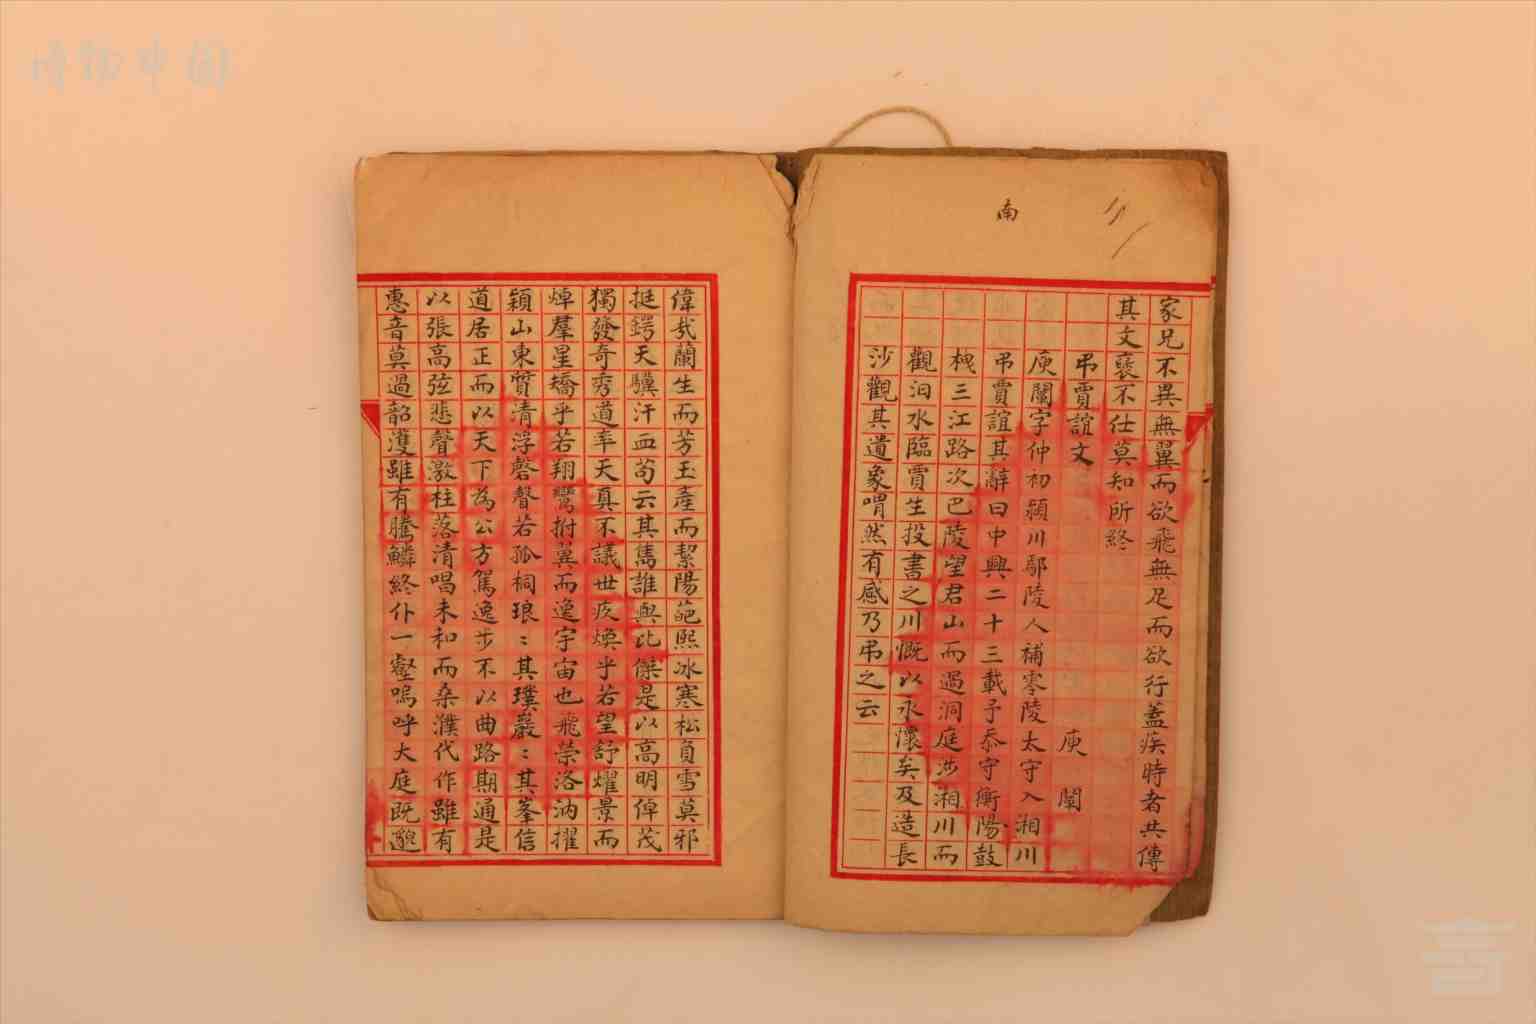 博物中国
南
家兄不異無翼而欲飛無足而欲行蓋疾時者共傳
其文襃不仕莫知所終
弔賈誼文 庾闡
庾闡字仲初潁川鄢陵人補零陵太守入湘川
弔賈誼其辭曰中興二十三載予忝守衡陽鼓
枻三江路次巴陵望君山而過洞庭涉湘川而
觀汨水臨賈生投書之川慨以永懷矣及造長
沙觀其遺象喟然有感乃弔之云
偉㢤蘭生而芳玉產而絜陽葩熙冰寒松負雪莫邪
挺鍔天驥汗血苟云其雋誰與比傑是以高明倬茂
獨發奇秀道率天真不議世疾煥乎若望舒燿景而
焯羣星矯乎若翔鸞拊翼而逸宇宙也飛榮洛汭擢
穎山東質清浮磬聲若孤桐琅〻其璞巖〻其峯信
道居正而以天下為公方駕逸步不以曲路期通是
以張高弦悲聲激柱落清唱未和而桑濮代作雖有
惠音莫過韶濩雖有騰鱗終仆一壑嗚呼大庭既邈